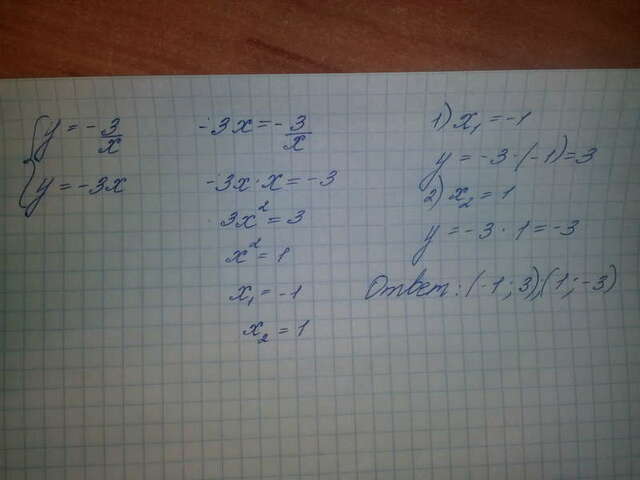 { y = -3/x
y = -3x
-3x = -3/x
-3x · x = -3
3x² = 3
x² = 1
x₁ = -1
x₂ = 1
1) x₁ = -1
y = -3 · (-1) = 3
2) x₂ = 1
y = -3 · 1 = -3
Ответ: (-1; 3), (1; -3)